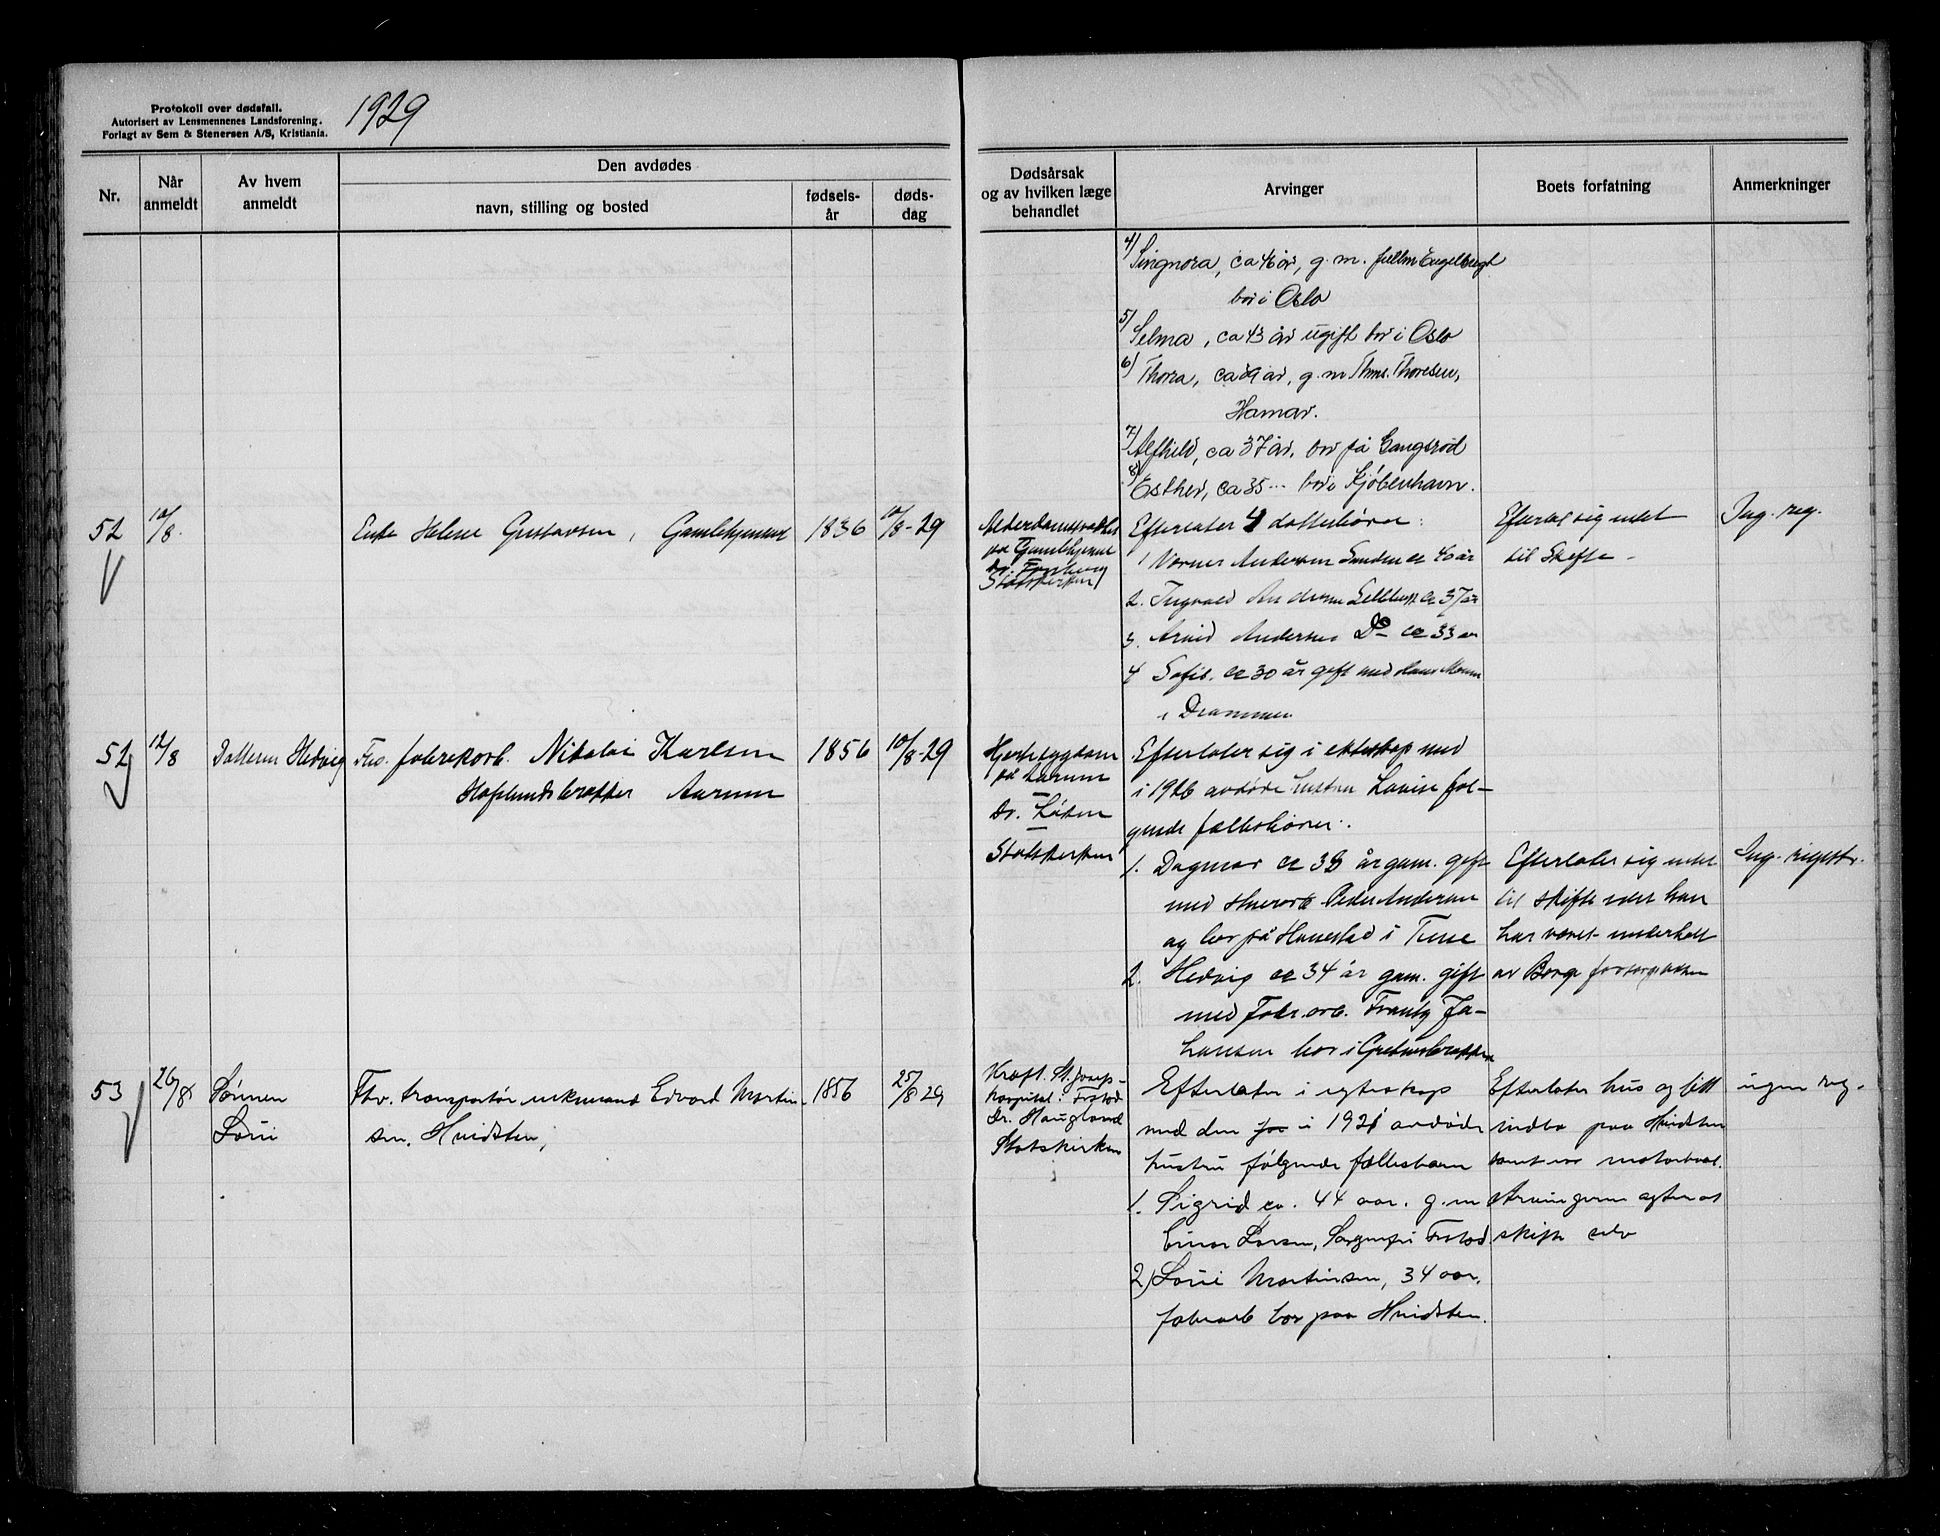 Protokoll over dødsfall.
Autorisert av Lensmennenes Landsforening.
Forlagt av Sem & Stenersen A/S, Kristiania.
1929
Nr.
Når anmeldt
Av hvem anmeldt
Den avdødes
navn, stilling og bosted
fødsels-
år
døds-
dag
Dødsårsak
og av hvilken læge
behandlet
Arvinger
Boets forfatning
Anmerkninger
4) Singnora, ca 46 år, g. m.
bor i Oslo
5) Selma, ca 43 år ugift bor i Oslo
6) Thora, ca 39 år, g. m Thms. Thoresen,
Hamar.
7) Alfhild, ca 37 år. bor på Gangsrød
8) Esther, ca 35 ... bor i Kjøbenhavn.
52 10/8. Enke Helene Gustavsen, Gamlehjemmet 1836 10/8-29
på Gamlehjemmet
Dr.
Statskirken
Efterlater 4 datterbørn:
1 Andersen ca 40 år
2. Ingvald Andersen ca 37 år
3. Arvid Andersen Do ca 33 år
4 Sofie. ca 30 år gift med Hans
i Drammen
Efterlot sig intet
til Skifte -
Ing. reg.
52 12/8 Datteren Hedvig Fhv. fabrikarb. Nikolai Karlsen 1856 10/8-29
Haslundsbrakker Aarum
Hjertesygdom
på Aarum
Dr. Løken
Statskirken
Efterlater sig i ekteskap med
i 1926 avdøde hustru Lovise føl-
gende fællesbørn:
1. Dagmar ca 38 år gam. gift
med Peder Andersen
og bor på Hannestad i Tune
2. Hedvig ca 34 år gam. gift
med Fabr. arb. Frantz Jo-
hansen bor i
Efterlater sig intet
til skifte idet han
har været underholt
av Borge forsorgskasse
Ing. registr.
53 26/8 Sønnen Fhv. transportør enkemand Edvard Martin- 1856 25/8 29
Loui sen. Hvidsten,
Kræft. St. Joseps-
hospital. F.stad
Dr. Haugland
Statskirken
Efterlater i egteskap
med den i 1921 avdøde
hustru følgende fællesbarn
1. Sigrid ca. 44 aar. g. m
Einar Larsen, Sorgenfri F.stad
2) Loui Martinsen, 34 aar.
fabrarb bor paa Hvidsten.
Efterlater hus og litt
indbo paa Hvidsten
samt en motorbaat.
Arvingerne agter at
skifte selv
ingen reg.